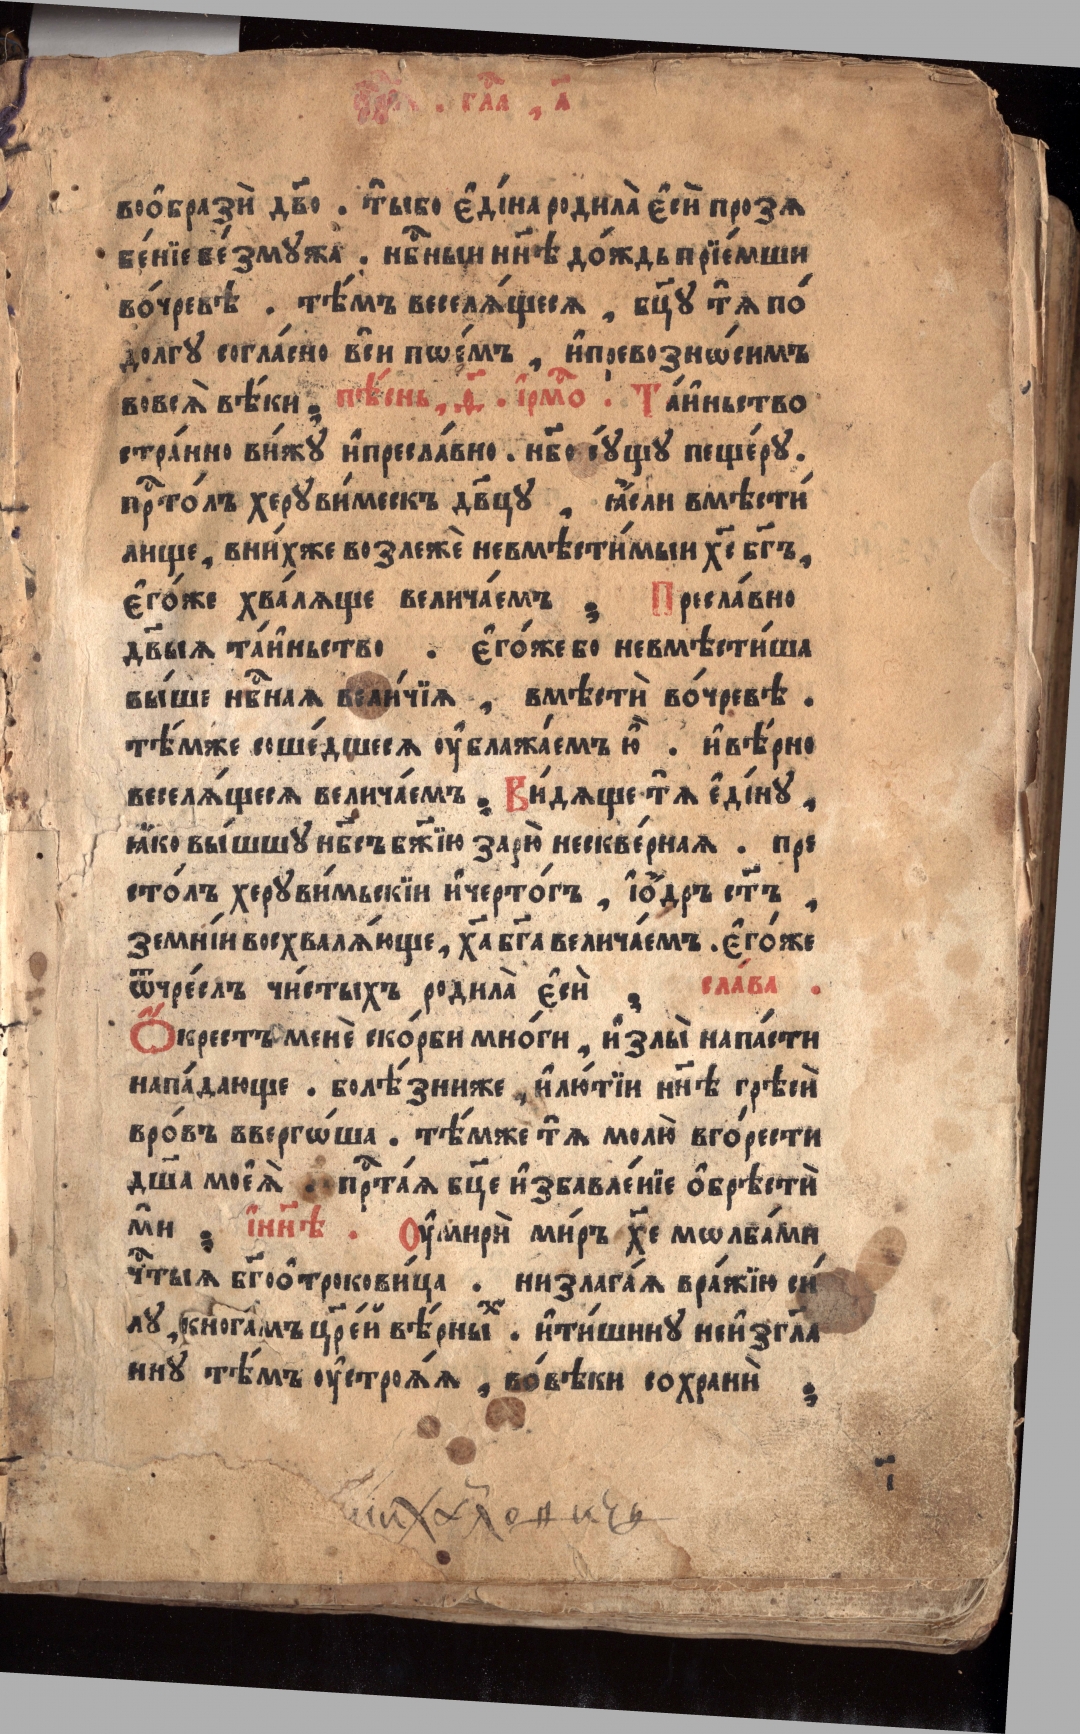 . гла҃ , а҃
воо҆бразѝ дв҃о . ты̑бо є҆ди́на родила̀ є҆сѝ прозѧ
бе́нїе бе́змꙋжа . нб҃ныи нн҃ѣ до́ждь прїе́мши
во́чревѣ . тѣ́мъ веселѧ́щесѧ , бц҃ꙋ тѧ̑ по́
долгꙋ согла́сно вси̑ пѡе́мъ , и҆превознѡ́симъ
вовсѧ̀ вѣ́ки . пѣ́снь , ѳ҃ . і҆рмо́ . Та́и҆ньство
стра́нно ви́жꙋ и҆пресла́вно . нб҃о сꙋ́щꙋ пеще́рꙋ .
прⷭ҇то́лъ херꙋви́мескъ дв҃цꙋ , ꙗ҆́сли вмѣсти́
лище , вни́хже возлежѐ невмѣсти́мыи хс҃ бг҃ъ ,
є҆го́же хва́лѧще велича́емъ . Пресла́вно
дв҃ыѧ та́и҆ньство . є҆го́же бо невмѣсти́ша
вы́ше нбⷭ҇наѧ вели́чїѧ , вмѣстѝ во́чревѣ .
тѣ́мже соше́дшесѧ оу҆блажа́емъ ю҆̀ . и҆вѣ́рно
веселѧ́щесѧ велича́емъ . Ви́дѧще тѧ̑ є҆ди́нꙋ ,
ꙗ҆́ко вы́шшꙋ нб҃съ бж҃їю зарю̀ несквернаѧ . пре
сто́лъ херꙋви́мьскїи и҆черто́гъ , і҆о҆́дръ ст҃ъ ,
земні́и восхвалѧ́юще , хс҃а бг҃а велича́емъ . є҆го́же
ѿчре́слъ чи́стыхъ родила̀ є҆сѝ . сла́ва .
Ѻ҆́крестъ менѐ ско́рби мно́ги , и҆злы̀ напа́сти
напа́дающе . болѣ́зниже , и҆лю́тїи нн҃ѣ грѣсѝ
вро́въ ввергѡ́ша . тѣ́мже тѧ̑ молю̀ вго́рести
дш҃а моеѧ̀ . прⷭ҇та́ѧ бц҃е и҆збавле́нїе ѻ҆брѣстѝ
ми̑ . і҆нн҃ѣ . Оу҆мирѝ ми́ръ хе҃ мѡлба́ми
чⷭ҇тыѧ бг҃оо҆трокови́ца . низлага́ѧ вра́жїю си́
лꙋ , кнога́мъ цр҃е́й вѣ́рныⷯ . и҆ти́шинꙋ неи҆згл҃а
ннꙋ тѣ́мъ оу҆строѧ́ѧ , во́вѣки сохранѝ
і҃
михаловичь